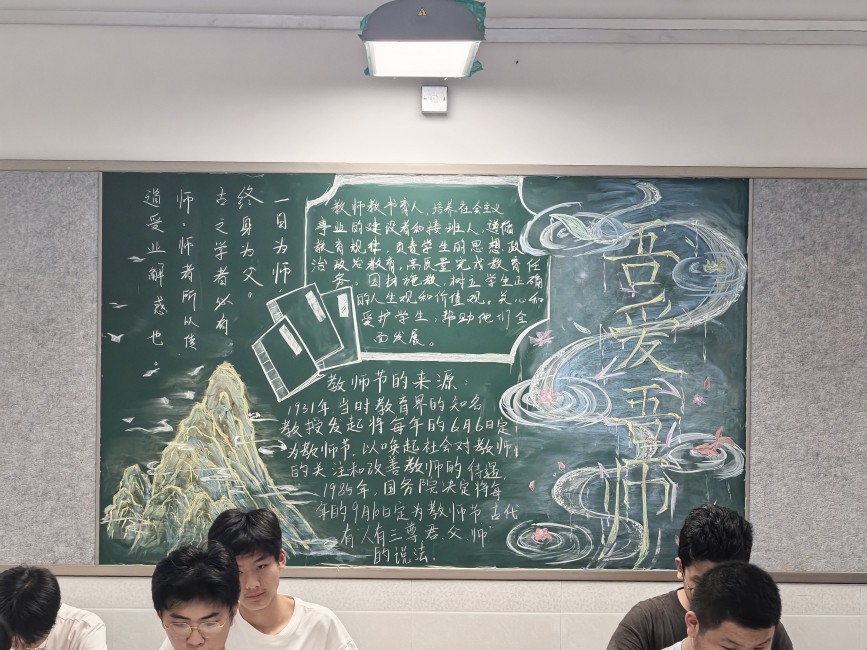 一日为师
终身为父。
古之学者必有
师，师者所以传
道受业解惑也。
教师教书育人，培养社会主义
事业的建设者和接班人，遵循
教育规律，负责学生的思想政
治政治教育，高质量完成教育任
务。因材施教，树立学生正确
的人生观和价值观，关心和
爱护学生，帮助他们全
面发展。
教师节的来源：
1931年，当时教育界的知名
教授发起将每年的6月6日定
为教师节，以唤起社会对教师
的关注和改善教师的待遇，
1985年，国务院决定将每
年的9月10日定为教师节，古代
有“有三尊君、父、师”
的说法.
吾爱吾师